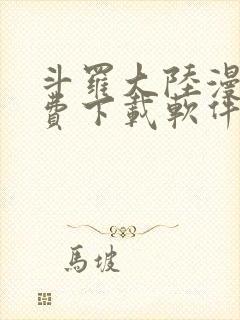 斗羅大陸漫
費下載軟件
馬坡